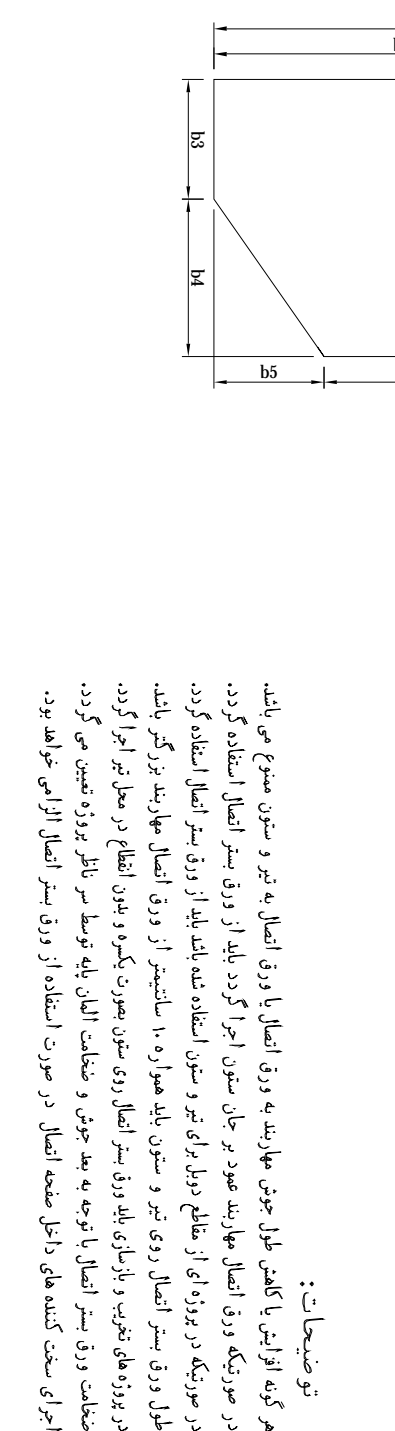 b3
b4
b5
توضیحات:
هر گونه افزایش یا کاهش طول جوش مهاربند به ورق اتصال یا ورق اتصال به تیر و ستون ممنوع می باشد.
در صورتیکه ورق اتصال مهاربند عمود بر جان ستون اجرا گردد باید از ورق بستر اتصال استفاده گردد.
در صورتیکه در پروژه ای از مقاطع دوبل برای تیر و ستون استفاده شده باشد باید از ورق بستر اتصال استفاده گردد.
طول ورق بستر اتصال روی تیر و ستون باید همواره ۱۰ سانتیمتر از ورق اتصال مهاربند بزرگتر باشد.
در پروژه های تخریب و بازسازی باید ورق بستر اتصال روی ستون بصورت یکسره و بدون انقطاع در محل تیر اجرا گردد.
ضخامت ورق بستر اتصال با توجه به بعد جوش و ضخامت المان پایه توسط سر ناظر پروژه تعیین می گردد.
اجرای سخت کننده های داخل صفحه اتصال در صورت استفاده از ورق بستر اتصال الزامی خواهد بود.